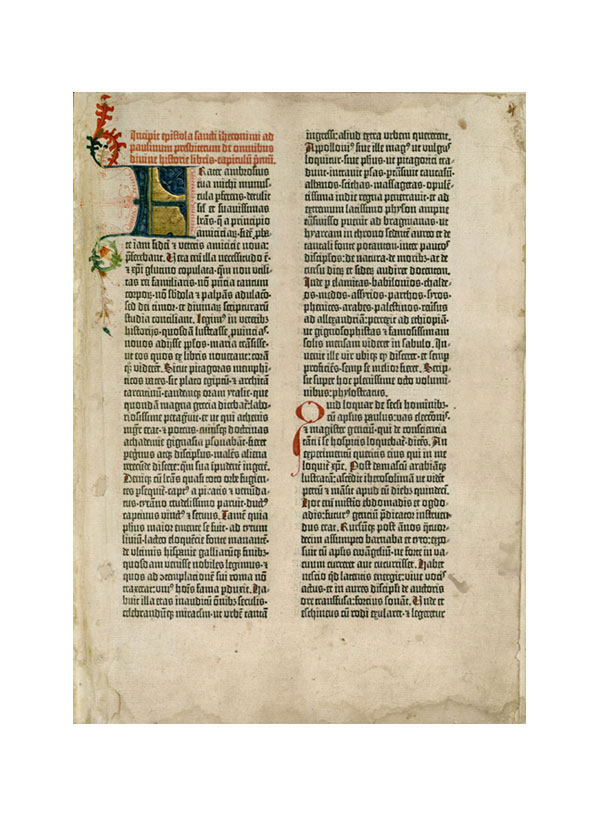 Incipit epistola sancti iheronimi ad
paulinum presbiterum de omnibus
divine historie libris. capitulũ pꝛimũ.
Frater ambrosius
tua michi munus-
cula pferens. detulit
sil et suavissimas
lrãs. q̃ a principio
amiciciaꝝ. fidẽ pba-
te iam fidei & veteris amicicie nova:
pferebant. Vera eni illa necessitudo ẽ.
& xpi glutino copulata. qm non utili-
tas rei familiaris. nõ pñcia tantum
corpoꝝ. nõ sbdola & palpãs adulaco.
sed dei timor. et divinaꝝ scripturarũ
studia conciliant. Legim⁹ in veterib⁹
historijs. quosdã lustrasse pvincias.
novos adijsse pplos. maria trãsisse.
ut eos quos ex libris noverant: corã
qꝫ viderent. Sicut pitagoras memphi-
ticos vates. sic plato egiptũ. & architã
tarentinũ. eandemqꝫ oram ytalie. que
quondã magna grecia dicebat: labo-
riosissime peragivit. et ut qui athenis
mgr̃ erat. & potens. cuiusqꝫ doctrinas
achademie gignasia psonabãt. fieret
pegrinus atqꝫ discipulus. malens aliena
verecunde discere: qm sua ipudent ingerẽ.
Deniqꝫ cũ lras quasi toto orbe fugien-
tes psequit. capt⁹ a piratis & venũda-
tus. tyrãno crudelissimo paruit. duct⁹
captivus vinct⁹ & servus. Tamẽ quia
phus maior emente se fuit. ad tytum
livium. lacteo eloquẽcie fonte manantẽ.
de ultimis hispanie galliarũqꝫ finib⁹.
quosdam venisse nobiles legimus.
quos ad ɔtemplacionẽ sui roma nõ
traxerat: uni⁹ hoĩs fama pduxit. Ha-
buit illa etas inauditũ õnib⁹ seculis.
celebrandũqꝫ miraclm. ut urbẽ tantã
ingressi: aliud extra urbem quererent.
Appolloni⁹ sive ille mag⁹ ut vulgus
loquitur. sive phus. ut pitagorici tra-
dunt. intravit psas. ptrãsivit caucasũ.
albanos. scithas. massagetas. opulẽ-
tissima indie regna penetravit. et ad
extremum latissimo physon ampne
trãsmisso pvenit ad bragmanas. ut
hyarcam in throno sedentẽ aureo et de
tantali fonte potantem. inter paucos
discipulos. de natura. de moribus. ac de
cursu dierũ et siderũ audiret docentem.
Inde p elamitas. babilonios. chalde-
os. medos. assyrios. parthos. syros.
phenices. arabes. palestinos. reversus
ad alexandriã: perrexit ad ethiopiã.
ut gignosophistas & famosissimam
solis mensam videret in sabulo. In-
venit ille vir ubiqꝫ qd disceret. et semp
proficiẽs. semp se melior fieret. Scrip-
sit super hoc plenissime octo volumi-
nibus: phylostratus.
Quid loquar de secli hominib⁹.
cũ aplus paulus: vas electoñis.
& magister genciũ. qui de consciencia
tãti i se hospitis loquebat. dicẽs. An
experimentũ queritis eius qui in me
loquit xpc. Post damascũ arabiãqꝫ
lustratã: ascẽdit iherosolimã ut viderẽ
petrũ & mãsit apud eũ dieb⁹ quindecĩ.
Hoc eni misterio ebdomadis et ogdo-
adis: futur⁹ genciũ pdicator instruen-
dus erat. Rursũqꝫ post ãnos quatuor-
decim assumpto barnaba et tyto: expo-
suit cũ aplis ewangeliũ. ne forte in va-
cuum curreret aut cucurrisset. Habet
nescio qd latentis energie: vive vocis
actus. et in aures discipli de auctoris
ore transfusa: fortius sonat. Unde et
eschineus cũ rodi exularet. & legeretur